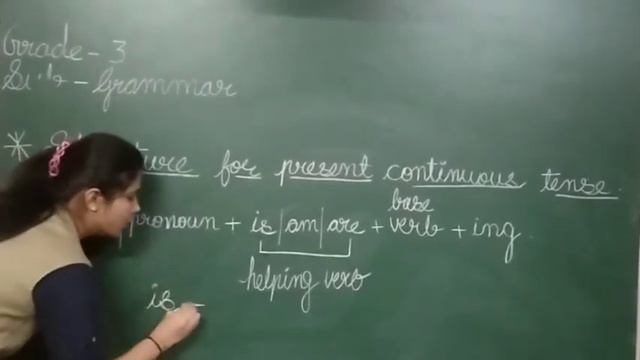 Grade - 3
Sub - Grammar
* ture for present continuous tense.
base
pronoun + is|am|are + verb + ing.
helping verb
is -